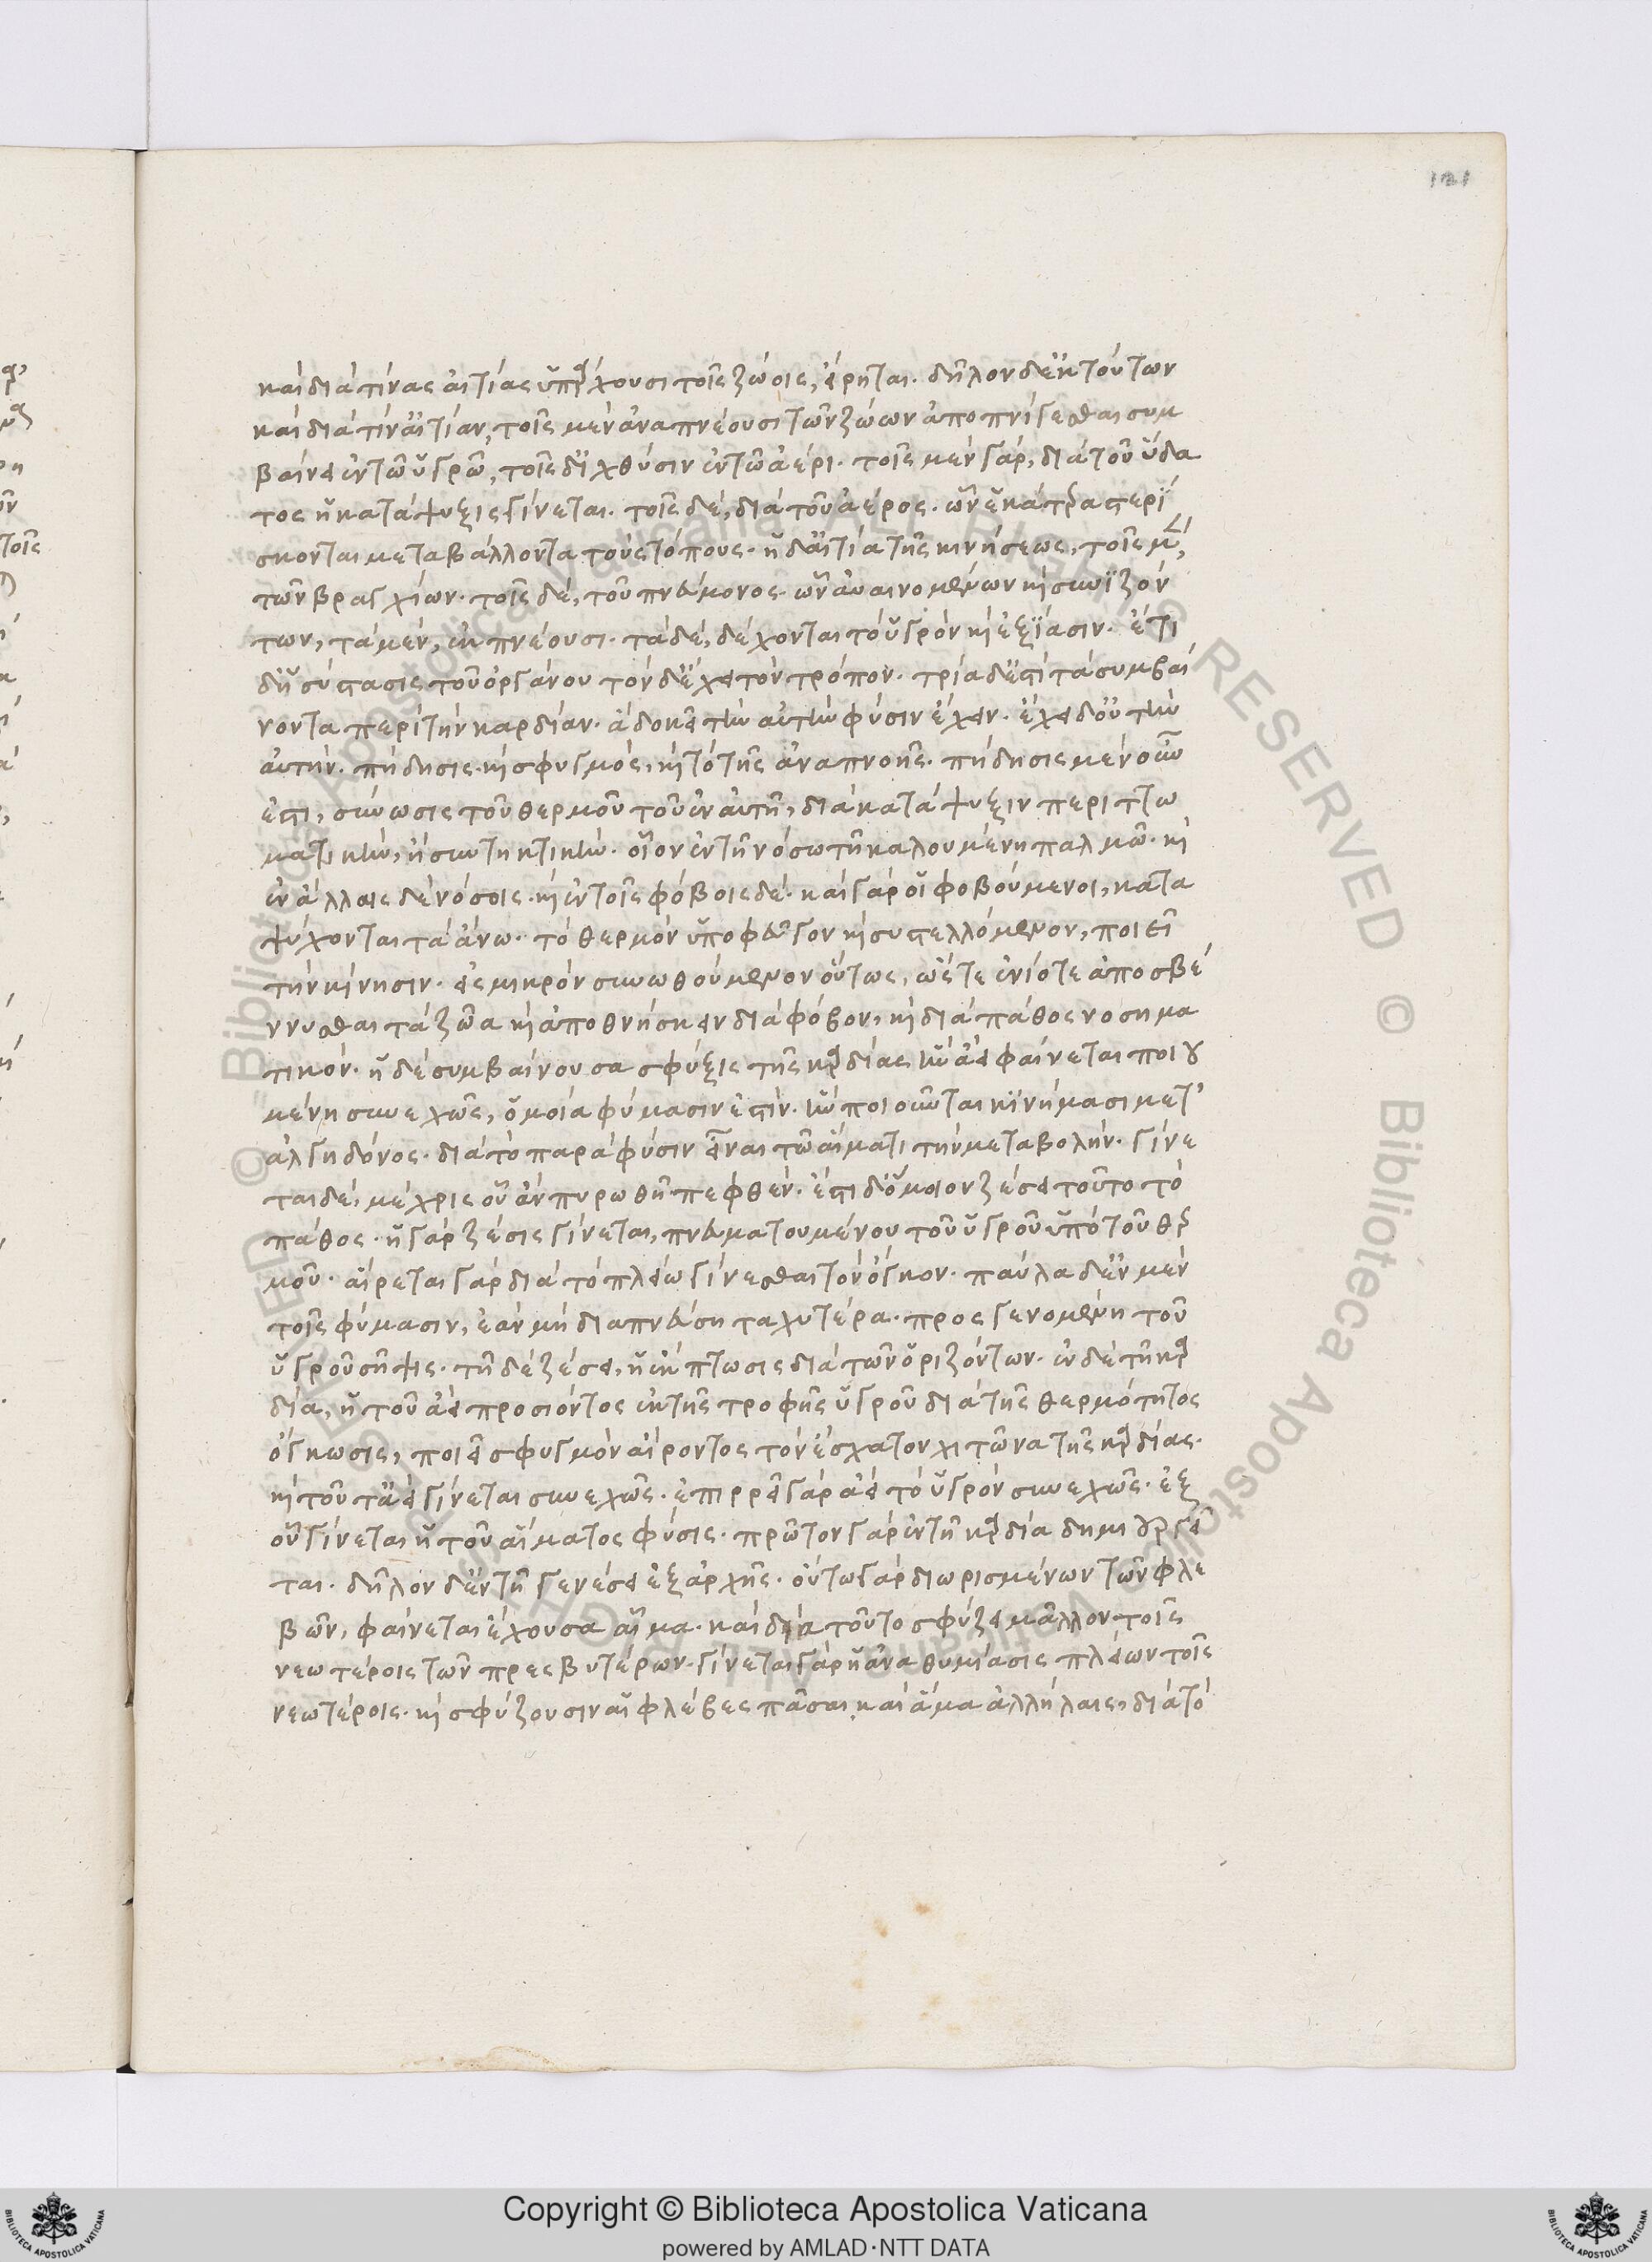 121
καὶ διὰ τίνας αἰτίας ὑπάρχουσι τοῖς ζώοις, εἴρηται. δῆλον δ' ἐκ τούτων
καὶ διὰ τίν' αἰτίαν, τοῖς μὲν ἀναπνέουσι τῶν ζώων ἀποπνίγεσθαι συμ
βαίνει ἐν τῶ ὑγρῶ, τοῖς δ' ἰχθύσιν ἐν τῶ ἀέρι. τοῖς μὲν γὰρ, διὰ τοῦ ὕδα
τος ἡ κατάψυξις γίνεται. τοῖς δὲ, διὰ τοῦ ἀέρος. ὧν ἑκάτερα στερί
σκονται μεταβάλλοντα τοὺς τόπους. ἡ δ' αἰτία τῆς κινήσεως, τοῖς μὲν,
τῶν βραγχίων. τοῖς δὲ, τοῦ πνεύμονος. ὧν αἰ αινομένων καὶ συνιζόν
των, τὰ μὲν, ἐκπνέουσι. τὰ δὲ, δέχονται τὸ ὑγρὸν καὶ ἐξιᾶσιν. ἔτι
δ' ἡ σύστασις τοῦ ὀργάνου τόνδ' ἔχει τὸν τρόπον. τρία δ' ἐστὶ τὰ συμβαί
νοντα περὶ τὴν καρδίαν. ἃ δοκεῖ τὴν αὐτὴν φύσιν ἔχειν. ἔχει δ' οὐ τὴν
αὐτήν. πήδησις. καὶ σφυγμὸς, καὶ τὸ τῆς ἀναπνοῆς. πήδησις μὲν οὖν
ἐστι, σύνωσις τοῦ θερμοῦ τοῦ ἐν αὐτῆ, διὰ κατάψυξιν περιττω
ματικὴν, ἢ συντηκτικὴν. οἷον ἐν τῆ νόσω τῆ καλουμένη παλμῶ. καὶ
ἐν ἄλλαις δὲ νόσοις. καὶ ἐν τοῖς φόβοις δέ. καὶ γὰρ οἱ φοβούμενοι, κατα
ψύχονται τὰ ἄνω. τὸ θερμὸν ὑποφεῦγον καὶ συστελλόμενον, ποιεῖ
τὴν κίνησιν. εἰς μικρὸν συνωθούμενον οὕτως, ὥστε ἐνίοτε ἀποσβέ
ννυσθαι τὰ ζῶα καὶ ἀποθνήσκειν διὰ φόβον, καὶ διὰ πάθος νοσημα
τικόν. ἡ δὲ συμβαίνουσα σφύξις τῆς καρδίας ἣν ἀεὶ φαίνεται ποιου
μένη συνεχῶς, ὁμοία φύμασιν ἐστὶν. ἣν ποιοῦνται κίνημασι μετ'
ἀλγηδόνος. διὰ τὸ παρὰ φύσιν εἶναι τῶ αἵματι τὴν μεταβολήν. γίνε
ται δὲ, μέχρις οὗ ἂν πυρωθῆ πεφθέν. ἔστι δ' ὅμοιον ζέσει τοῦτο τὸ
πάθος. ἡ γὰρ ζέσις γίνεται, πνευματουμένου τοῦ ὑγροῦ ὑπὸ τοῦ θερ
μοῦ. αἴρεται γὰρ διὰ τὸ πλείω γίνεσθαι τὸν ὄγκον. παῦλα δ' ἐν μὲν
τοῖς φύμασιν, ἐὰν μὴ διαπνεύση παχυτέρα. προσγενομένη τοῦ
ὑγροῦ σῆψις. τῆ δὲ ζέσει, ἡ ἔκπτωσις διὰ τῶν ὁριζόντων. ἐν δὲ τῆ καρ
δία, ἡ τοῦ ἀεὶ προσιόντος ἐκ τῆς τροφῆς ὑγροῦ διὰ τῆς θερμότητος
ὄγκωσις, ποιεῖ σφυγμὸν αἴροντος τὸν ἔσχατον χιτῶνα τῆς καρδίας.
καὶ τοῦτ' ἀεὶ γίνεται συνεχῶς. ἐπιρρεῖ γὰρ ἀεὶ τὸ ὑγρὸν συνεχῶς. ἐξ
οὗ γίνεται ἡ τοῦ αἵματος φύσις. πρῶτον γὰρ ἐν τῆ καρδία δημιουργεῖ
ται. δῆλον δ' ἐν τῆ γενέσει ἐξ ἀρχῆς. οὔτω γὰρ διωρισμένων τῶν φλε
βῶν, φαίνεται ἔχουσα αἷμα. καὶ διὰ τοῦτο σφύζει μᾶλλον τοῖς
νεωτέροις τῶν πρεσβυτέρων. γίνεται γὰρ ἡ ἀναθυμίασις πλείων τοῖς
νεωτέροις. καὶ σφύζουσιν αἱ φλέβες πᾶσαι, καὶ ἅμα ἀλλήλαις, διὰ τὸ
Copyright © Biblioteca Apostolica Vaticana
powered by AMLAD·NTT DATA